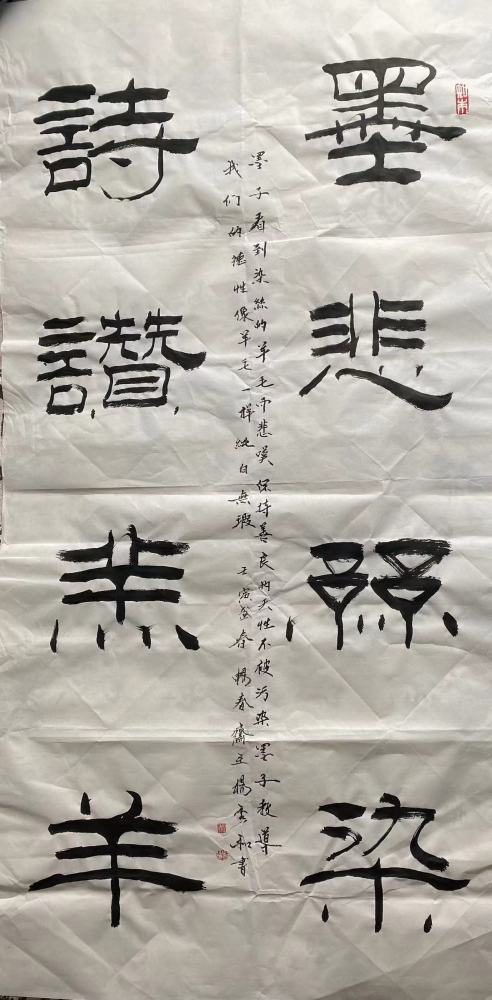 墨悲絲染
墨子看到染絲的羊毛而悲嘆保持善良的天性不被污染墨子教導
我们的德性像羊毛一樣純白無瑕 壬寅春 春齋主楊和書
詩讚羔羊